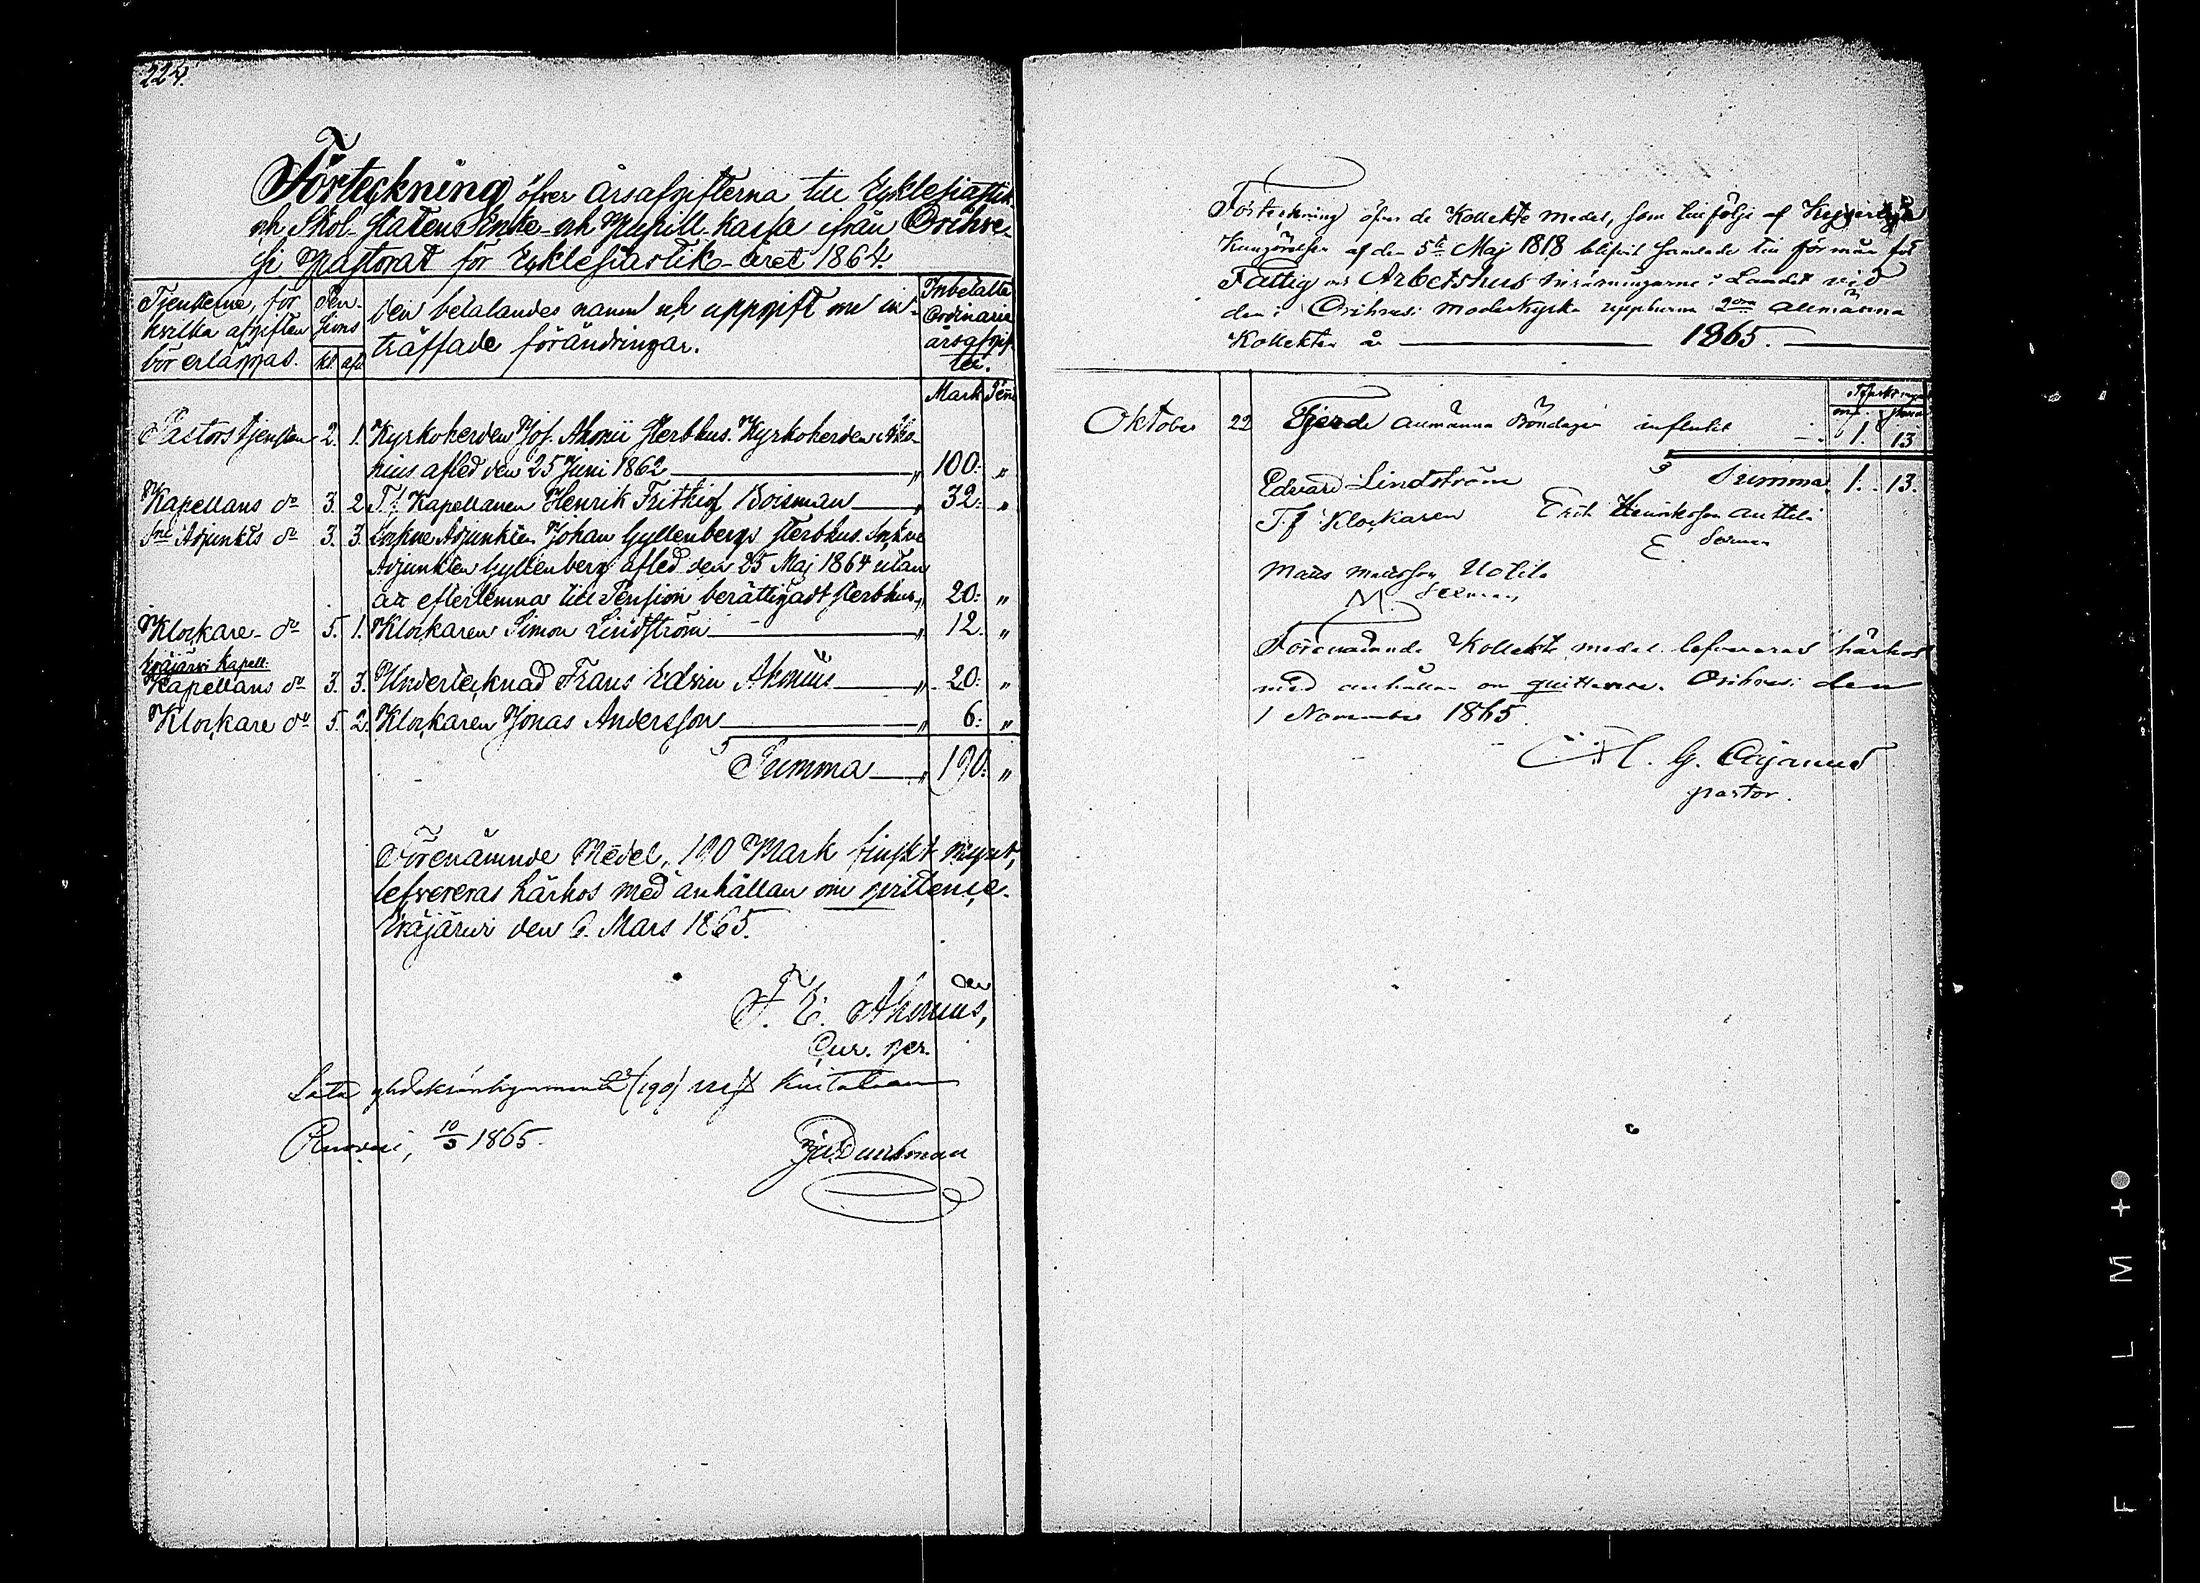 224.
Förteckning öfver årsafgifterna till Ecklesiastik
och Skol-Staten Enke- och Pupill-kassa ifrån Orihve-
si Pastorat för Ecklesiastik-året 1864.
Tjensterne, för hvilka afgiften bör erläggas. Pensions kl. afd. Den betalandes namn och uppgift om inträffade förändringar. Inbetalte Ordinarie årsafgifter.
Mark Penni
Pastors tjensten 2. 1. Kyrkoherden Jos. Ahonii Sterbhus. Kyrkoherden Aho-
nius afled den 25 Juni 1862 — „ 100: „
Kapellans do 3. 2. T.f. Kapellanen Henrik Frithiof Boisman — „ 32: „
Sne Adjunkts do 3. 3. Sockne Adjunkten Johan Gyllenbergs sterbhus. Sockne
Adjunkten Gyllenberg afled den 25 Maj 1864 utan
att efterlemna till Pension berättigadt sterbhus „ 20: „
Klockare do 5. 1. Klockaren Simon Lindström — „ 12. „
Eräjärvi Kapell:
Kapellans do 3. 3. Undertecknad Frans Edvin Ahonius — „ 20: „
Klockare do 5. 2. Klockaren Jonas Andersson — „ 6: „
Summa — „ 190: „
Förenämnde Medel, 190 Mark finskt mynt,
lefvereras härhos med anhållan om qvittence.
Eräjärvi den 6. Mars 1865.
F. E. Ahonius,
Cur. ger.
Sata yhdeksänkymmentä (190) mrkf Kuitataan
Ruovesi, 10/3 1865.
Durchman
Förteckning öfver de Kollekte medel, som till följe af Kejserliga
Kungörelsen af den 5te Maj 1818 blifvit samlade till förmån för
Fattig och Arbetshus inrättningarne i Landet vid
den i Orihvesi moderkyrka uppburna allmänna
Kollekten år — 1865. —
mk. penni
Oktober 22 Fjerde allmänna Böndagen influtit 1. 13
Summa 1. 13.
Edvard Lindström
T.f. Klockaren
Erik Henriksson Anttila
E
Mats Matsson Uotila
M.
Förenämnde Kollekte medel lefvereras härhos
med anhållan om quittence. Orihvesi den
1 November 1865.
G. Cajanus
pastor.
FILM